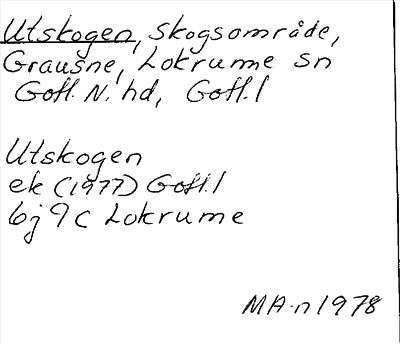 Utskogen, skogsområde,
Grausne, Lokrume sn
Gotl. N. hd, Gotl. l
Utskogen
ek (1977) Gotl. l
6j 9 c Lokrume
MA-n 1978